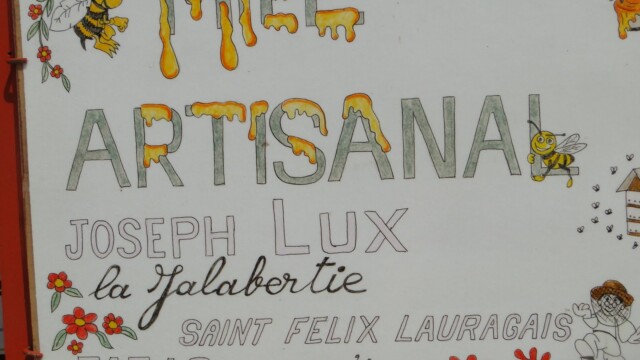 MIEL
ARTISANAL
JOSEPH LUX
la Jalabertie
SAINT FELIX LAURAGAIS